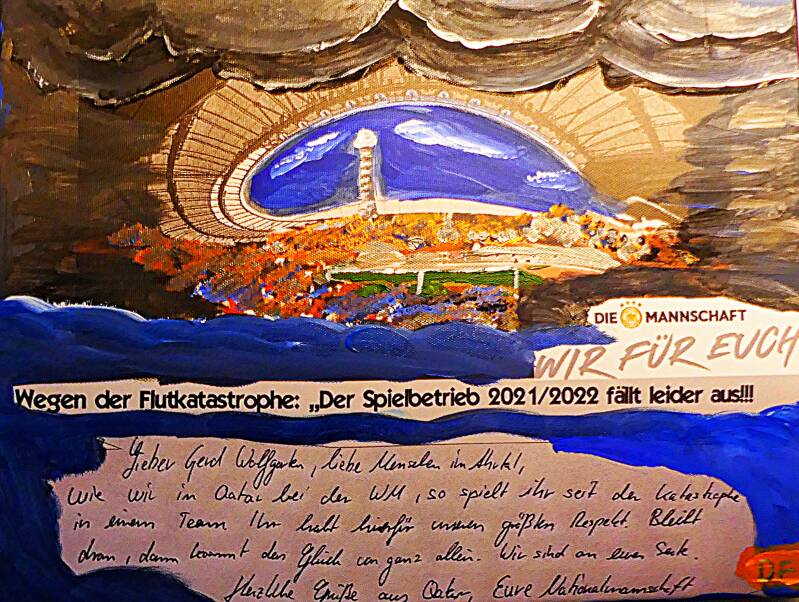 DIE MANNSCHAFT
WIR FÜR EUCH
Wegen der Flutkatastrophe: „Der Spielbetrieb 2021/2022 fällt leider aus!!!
Lieber Gerd Wolfgarten, liebe Menschen im Ahrtal,
wie wir in Qatar bei der WM, so spielt ihr seit der Katastrophe
in einem Team Ihr habt hierfür unseren größten Respekt. Bleibt
dran, dann kommt das Glück von ganz allein. Wir sind an eurer Seite.
Herzliche Grüße aus Qatar, Eure Nationalmannschaft
DF